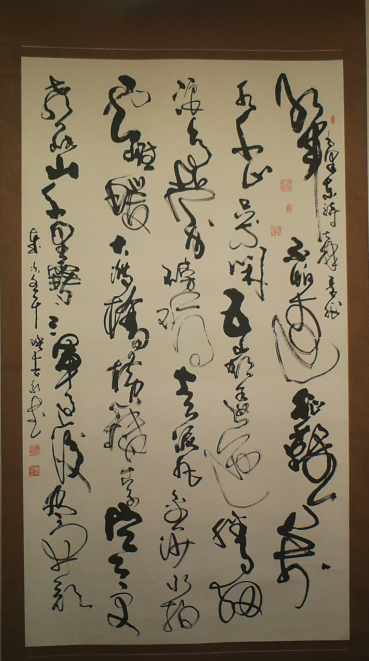 毛澤東詩
紅軍不怕遠征難萬
水千山只等閑五嶺逶迤騰細
浪烏蒙磅礴走泥丸金沙水拍
雲崖暖大渡橋橫鐵索寒更
喜岷山千里雪三軍過後盡開顏